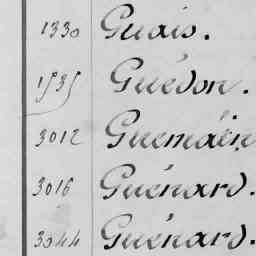 1330 Guais.
1535 Guédon.
3012 Guémain
3016 Guénard.
3044 Guénard.